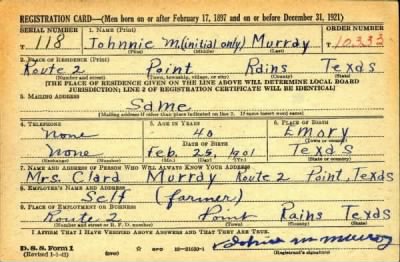 REGISTRATION CARD—(Men born on or after February 17, 1897 and on or before December 31, 1921)
SERIAL NUMBER 1. NAME (Print) ORDER NUMBER
118 Johnnie M.(initial only) Murray 10333
(First) (Middle) (Last)
2. PLACE OF RESIDENCE (Print)
Route 2 Point Rains Texas
(Number and street) (Town, township, village, or city) (County) (State)
[THE PLACE OF RESIDENCE GIVEN ON THE LINE ABOVE WILL DETERMINE LOCAL BOARD
JURISDICTION; LINE 2 OF REGISTRATION CERTIFICATE WILL BE IDENTICAL]
3. MAILING ADDRESS
Same
[Mailing address if other than place indicated on line 2. If same insert word same]
4. TELEPHONE 5. AGE IN YEARS 6. PLACE OF BIRTH
None 40 Emory
DATE OF BIRTH (Town or county)
None Feb. 25 1901 Texas
(Exchange) (Number) (Mo.) (Day) (Yr.) (State or country)
7. NAME AND ADDRESS OF PERSON WHO WILL ALWAYS KNOW YOUR ADDRESS
Mrs. Clara Murray Route 2 Point, Texas
8. EMPLOYER'S NAME AND ADDRESS
Self (farmer)
9. PLACE OF EMPLOYMENT OR BUSINESS
Route 2 Point Rains Texas
(Number and street or R. F. D. number) (Town) (County) (State)
I AFFIRM THAT I HAVE VERIFIED ABOVE ANSWERS AND THAT THEY ARE TRUE.
D. S. S. Form 1
(Revised 1-1-42) (over) GPO 16—21630-1 Johnie m murray
(Registrant's signature)